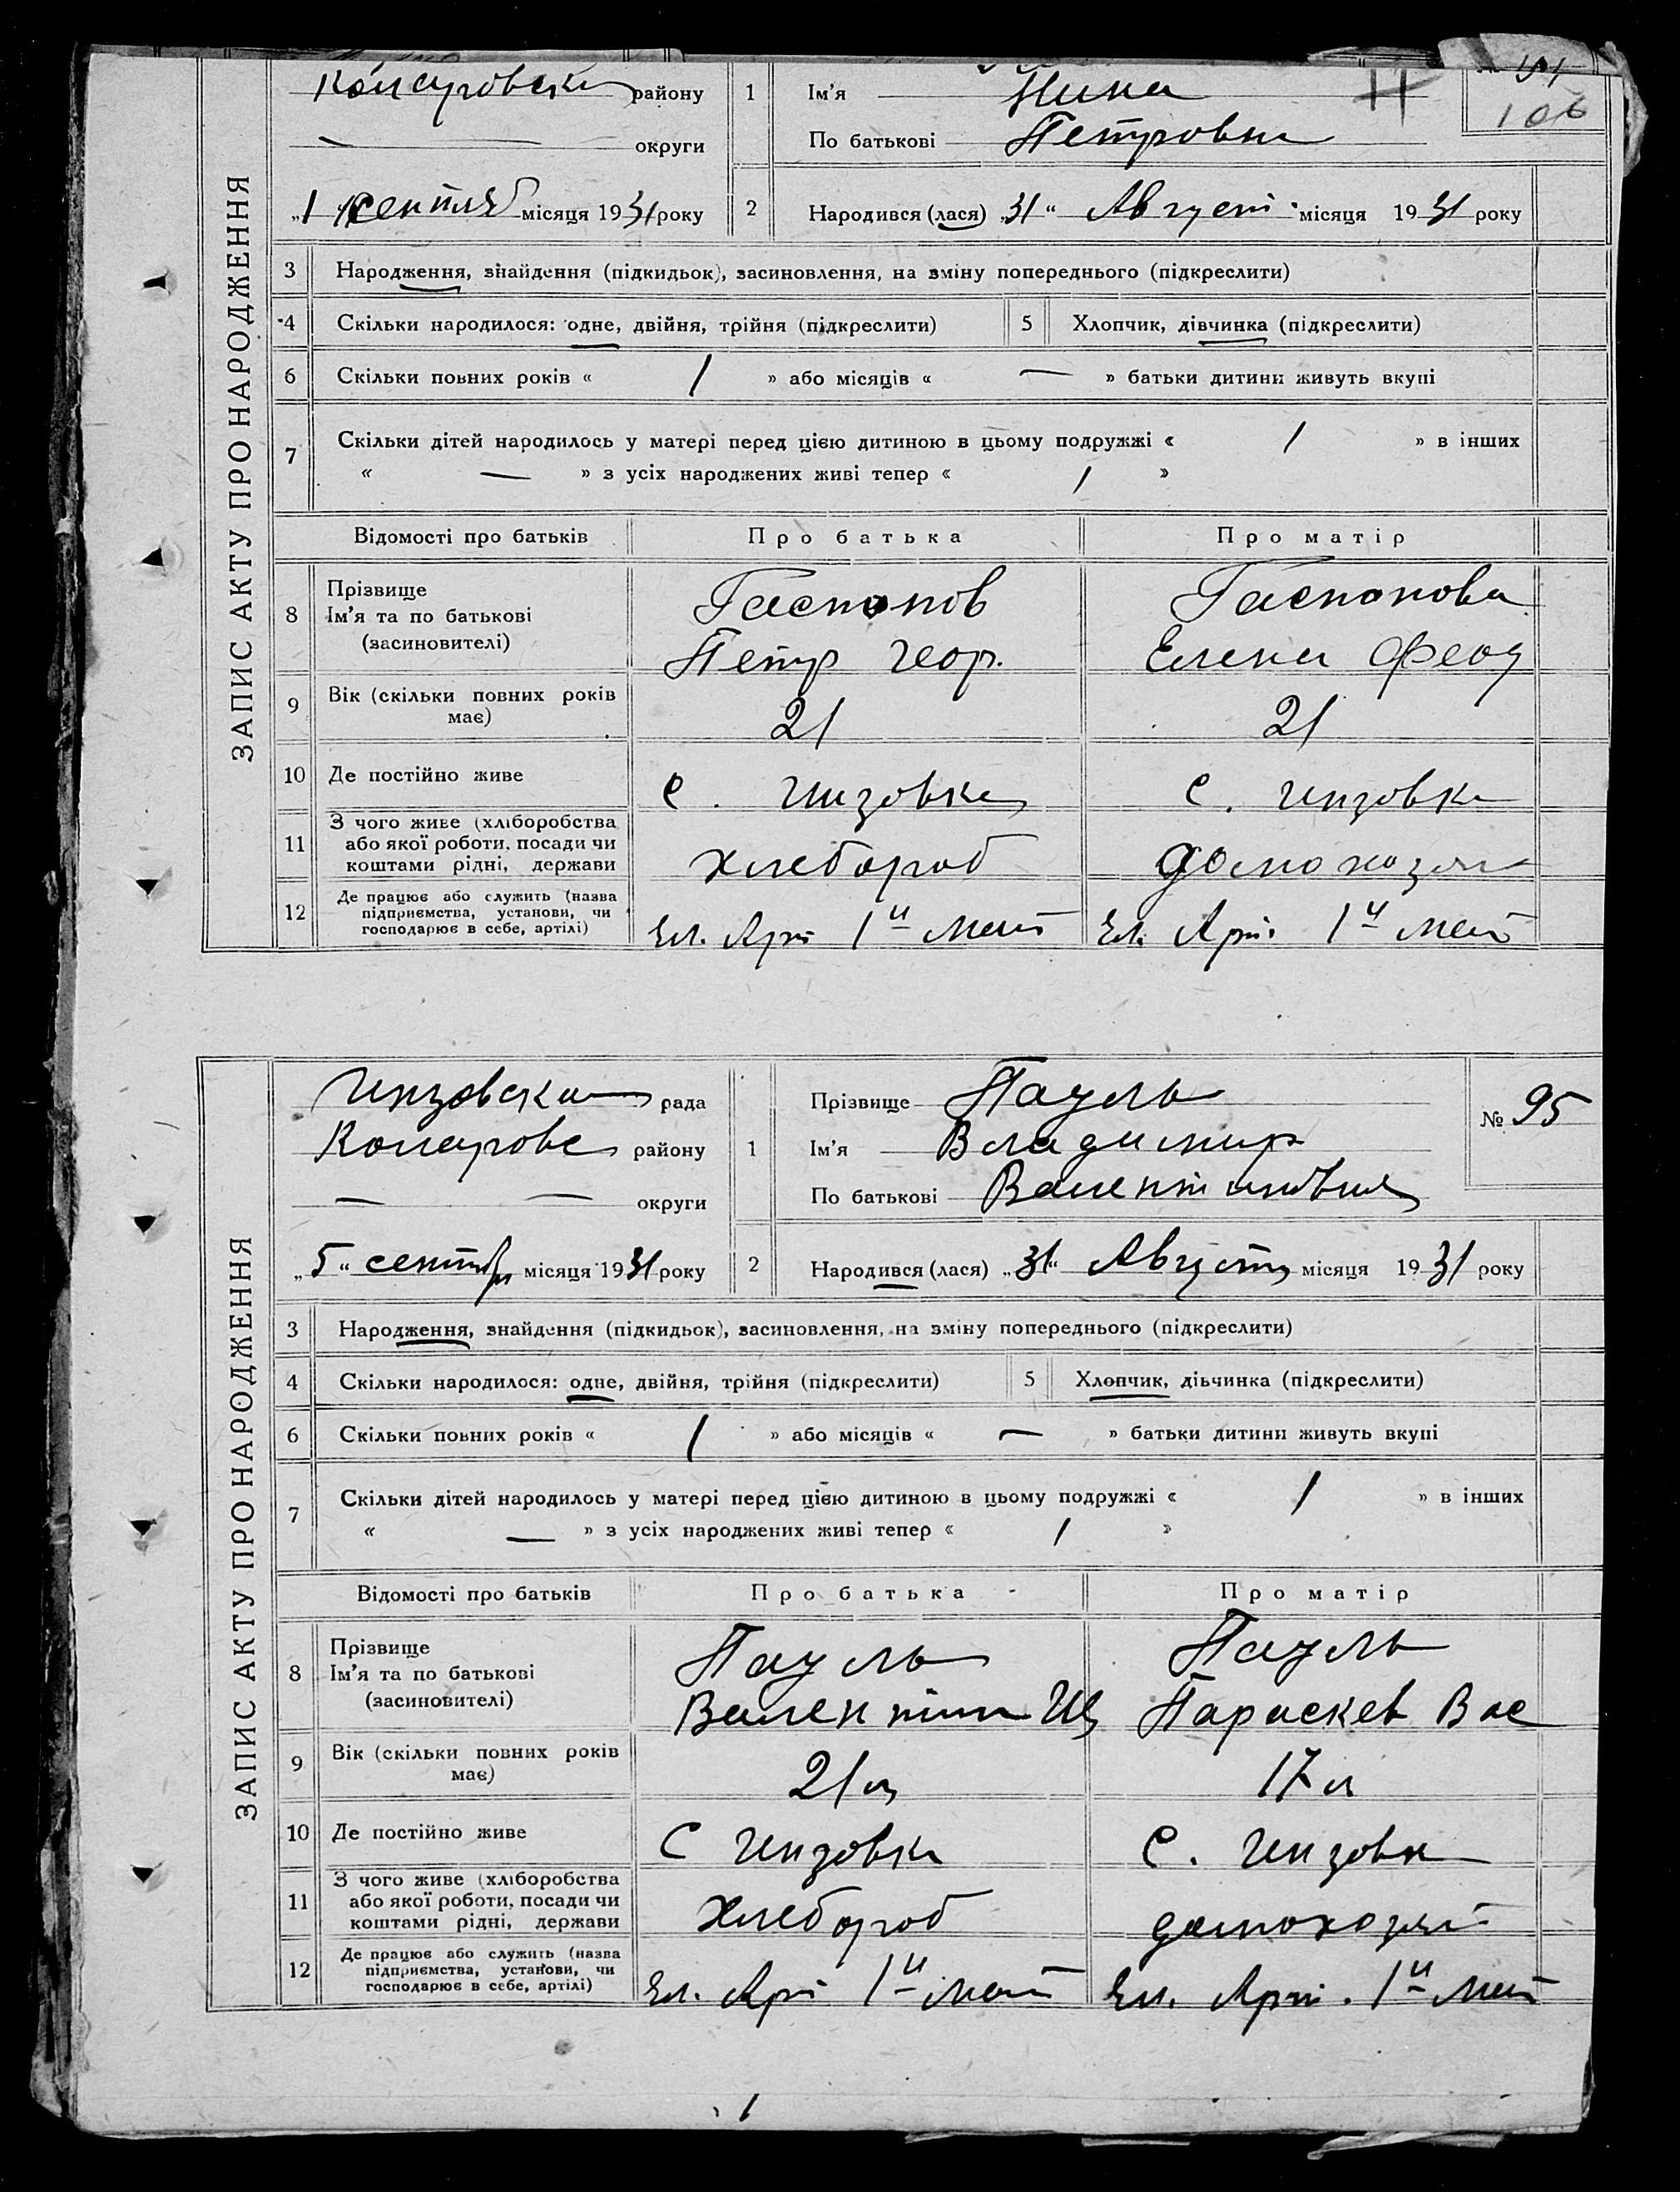 ЗАПИС АКТУ ПРО НАРОДЖЕННЯ
району
1
Ім'я Нина
106
округи
По батькові Петровна
„1 сентяб місяця 1931 року
2
Народився (лася) „31“ Август місяця 1931 року
3 Народження, знайдення (підкидьок), засиновлення, на зміну попереднього (підкреслити)
4 Скільки народилося: одне, двійня, трійня (підкреслити)
5 Хлопчик, дівчинка (підкреслити)
6 Скільки повних років « 1 » або місяців « — » батьки дитини живуть вкупі
7 Скільки дітей народилось у матері перед цією дитиною в цьому подружжі « 1 » в інших
« — » з усіх народжених живі тепер « 1 »
Відомості про батьків
Про батька
Про матір
8 Прізвище
Ім'я та по батькові
(засиновителі)
Гаспонов
Петр Геор.
Гаспонова
Елена Феод
9 Вік (скільки повних років
має)
21
21
10 Де постійно живе
с.
с.
11 З чого живе (хліборобства
або якої роботи, посади чи
коштами рідні, держави
Хлебороб
домохозя
12 Де працює або служить (назва
підприємства, установи, чи
господарює в себе, артілі)
Ел. Арт 1й Май
Ел. Арт. 1й Май
ЗАПИС АКТУ ПРО НАРОДЖЕННЯ
рада
1
Прізвище Пауль
№ 95
району
Ім'я Владимир
— — округи
По батькові Валентинович
„5“ сентябр місяця 1931 року
2
Народився (лася) „31“ Августа місяця 1931 року
3 Народження, знайдення (підкидьок), засиновлення, на зміну попереднього (підкреслити)
4 Скільки народилося: одне, двійня, трійня (підкреслити)
5 Хлопчик, дівчинка (підкреслити)
6 Скільки повних років « 1 » або місяців « — » батьки дитини живуть вкупі
7 Скільки дітей народилось у матері перед цією дитиною в цьому подружжі « 1 » в інших
« — » з усіх народжених живі тепер « 1 »
Відомості про батьків
Про батька
Про матір
8 Прізвище
Ім'я та по батькові
(засиновителі)
Пауль
Валентин
Пауль
Параскев Вас
9 Вік (скільки повних років
має)
21 л
17 л
10 Де постійно живе
С
с.
11 З чого живе (хліборобства
або якої роботи, посади чи
коштами рідні, держави
Хлебороб
домохозяй
12 Де працює або служить (назва
підприємства, установи, чи
господарює в себе, артілі)
Ел. Арт 1й Май
Ел. Арт. 1й Май